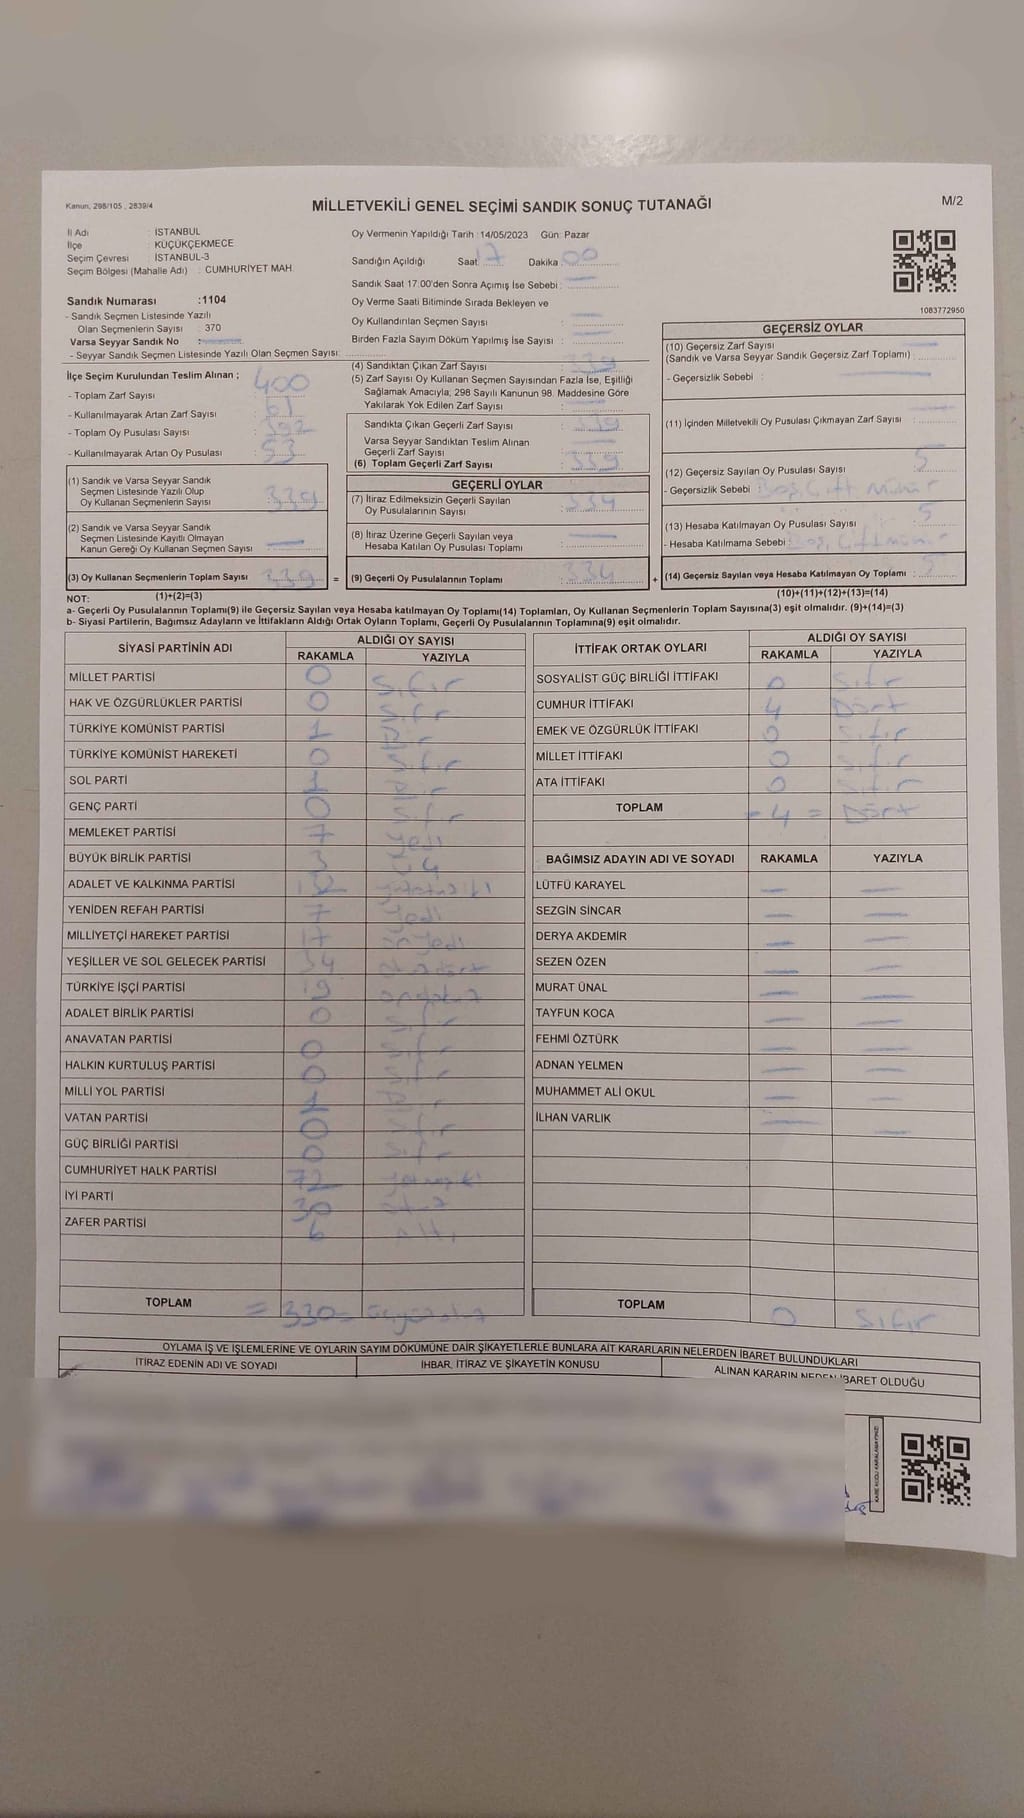 Kanun, 298/105 , 2839/4
MİLLETVEKİLİ GENEL SEÇİMİ SANDIK SONUÇ TUTANAĞI
M/2
İl Adı : İSTANBUL
İlçe : KÜÇÜKÇEKMECE
Seçim Çevresi : İSTANBUL-3
Seçim Bölgesi (Mahalle Adı) : CUMHURİYET MAH.
Sandık Numarası :1104
- Sandık Seçmen Listesinde Yazılı
Olan Seçmenlerin Sayısı : 370
Varsa Seyyar Sandık No :
- Seyyar Sandık Seçmen Listesinde Yazılı Olan Seçmen Sayısı:
Oy Vermenin Yapıldığı Tarih :14/05/2023 Gün: Pazar
Sandığın Açıldığı Saat 17 Dakika 00
Sandık Saat 17.00'den Sonra Açımış İse Sebebi : —
Oy Verme Saati Bitiminde Sırada Bekleyen ve
Oy Kullandırılan Seçmen Sayısı : —
Birden Fazla Sayım Döküm Yapılmış İse Sayısı : —
1083772950
İlçe Seçim Kurulundan Teslim Alınan ;
- Toplam Zarf Sayısı : 400
- Kullanılmayarak Artan Zarf Sayısı : 61
- Toplam Oy Pusulası Sayısı : 392
- Kullanılmayarak Artan Oy Pusulası : 53
(1) Sandık ve Varsa Seyyar Sandık
Seçmen Listesinde Yazılı Olup
Oy Kullanan Seçmenlerin Sayısı : 339
(2) Sandık ve Varsa Seyyar Sandık
Seçmen Listesinde Kayıtlı Olmayan
Kanun Gereği Oy Kullanan Seçmen Sayısı : —
(3) Oy Kullanan Seçmenlerin Toplam Sayısı : 339 =
(1)+(2)=(3)
(4) Sandıktan Çıkan Zarf Sayısı : 339
(5) Zarf Sayısı Oy Kullanan Seçmen Sayısından Fazla İse, Eşitliği
Sağlamak Amacıyla; 298 Sayılı Kanunun 98. Maddesine Göre
Yakılarak Yok Edilen Zarf Sayısı : —
Sandıkta Çıkan Geçerli Zarf Sayısı : 339
Varsa Seyyar Sandıktan Teslim Alınan
Geçerli Zarf Sayısı : —
(6) Toplam Geçerli Zarf Sayısı : 339
GEÇERLİ OYLAR
(7) İtiraz Edilmeksizin Geçerli Sayılan
Oy Pusulalarının Sayısı : 334
(8) İtiraz Üzerine Geçerli Sayılan veya
Hesaba Katılan Oy Pusulası Toplamı : —
(9) Geçerli Oy Pusulalarının Toplamı : 334 +
GEÇERSİZ OYLAR
(10) Geçersiz Zarf Sayısı
(Sandık ve Varsa Seyyar Sandık Geçersiz Zarf Toplamı) : —
- Geçersizlik Sebebi : —
(11) İçinden Milletvekili Oy Pusulası Çıkmayan Zarf Sayısı : —
(12) Geçersiz Sayılan Oy Pusulası Sayısı : 5
- Geçersizlik Sebebi : Boş, Çift Mühür
(13) Hesaba Katılmayan Oy Pusulası Sayısı : 5
- Hesaba Katılmama Sebebi : Boş, Çift mühür
(14) Geçersiz Sayılan veya Hesaba Katılmayan Oy Toplamı : 5
(10)+(11)+(12)+(13)=(14)
NOT:
a- Geçerli Oy Pusulalarının Toplamı(9) ile Geçersiz Sayılan veya Hesaba katılmayan Oy Toplamı(14) Toplamları, Oy Kullanan Seçmenlerin Toplam Sayısına(3) eşit olmalıdır. (9)+(14)=(3)
b- Siyasi Partilerin, Bağımsız Adayların ve İttifakların Aldığı Ortak Oyların Toplamı, Geçerli Oy Pusulalarının Toplamına(9) eşit olmalıdır.
SİYASİ PARTİNİN ADI ALDIĞI OY SAYISI
RAKAMLA YAZIYLA
MİLLET PARTİSİ 0 Sıfır
HAK VE ÖZGÜRLÜKLER PARTİSİ 0 Sıfır
TÜRKİYE KOMÜNİST PARTİSİ 1 Bir
TÜRKİYE KOMÜNİST HAREKETİ 0 Sıfır
SOL PARTİ 1 Bir
GENÇ PARTİ 0 Sıfır
MEMLEKET PARTİSİ 7 Yedi
BÜYÜK BİRLİK PARTİSİ 3 Üç
ADALET VE KALKINMA PARTİSİ
YENİDEN REFAH PARTİSİ 7 Yedi
MİLLİYETÇİ HAREKET PARTİSİ 17 onyedi
YEŞİLLER VE SOL GELECEK PARTİSİ 34
TÜRKİYE İŞÇİ PARTİSİ 19 ondokuz
ADALET BİRLİK PARTİSİ 0 Sıfır
ANAVATAN PARTİSİ 0 Sıfır
HALKIN KURTULUŞ PARTİSİ 0 Sıfır
MİLLİ YOL PARTİSİ 1 Bir
VATAN PARTİSİ 0 Sıfır
GÜÇ BİRLİĞİ PARTİSİ 0 Sıfır
CUMHURİYET HALK PARTİSİ 72 yetmişiki
İYİ PARTİ 30 otuz
ZAFER PARTİSİ 6 Altı
TOPLAM = 330 = üçyüzotuz
İTTİFAK ORTAK OYLARI ALDIĞI OY SAYISI
RAKAMLA YAZIYLA
SOSYALİST GÜÇ BİRLİĞİ İTTİFAKI 0 Sıfır
CUMHUR İTTİFAKI 4 Dört
EMEK VE ÖZGÜRLÜK İTTİFAKI 0 Sıfır
MİLLET İTTİFAKI 0 Sıfır
ATA İTTİFAKI 0 Sıfır
TOPLAM = 4 = Dört
BAĞIMSIZ ADAYIN ADI VE SOYADI RAKAMLA YAZIYLA
LÜTFÜ KARAYEL — —
SEZGİN SİNCAR — —
DERYA AKDEMİR — —
SEZEN ÖZEN — —
MURAT ÜNAL — —
TAYFUN KOCA — —
FEHMİ ÖZTÜRK — —
ADNAN YELMEN — —
MUHAMMET ALİ OKUL — —
İLHAN VARLIK — —
TOPLAM 0 Sıfır
OYLAMA İŞ VE İŞLEMLERİNE VE OYLARIN SAYIM DÖKÜMÜNE DAİR ŞİKAYETLERLE BUNLARA AİT KARARLARIN NELERDEN İBARET BULUNDUKLARI
İTİRAZ EDENİN ADI VE SOYADI İHBAR, İTİRAZ VE ŞİKAYETİN KONUSU ALINAN KARARIN NEDEN İBARET OLDUĞU